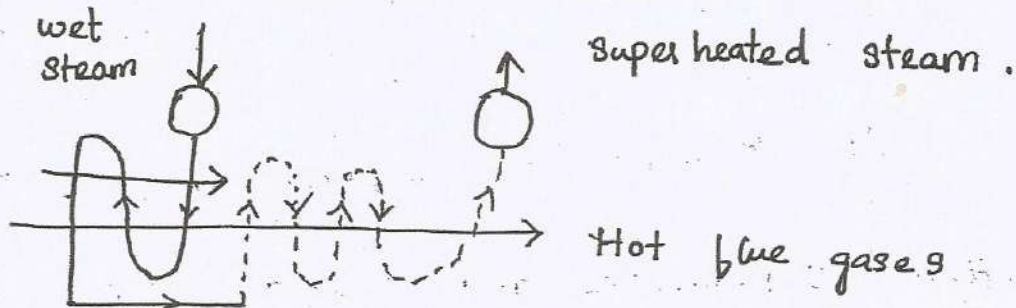 wet
steam
super heated steam .
Hot flue gases